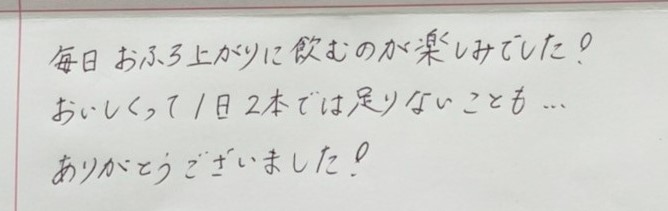 毎日おふろ上がりに飲むのが楽しみでした!
おいしくって1日2本では足りないことも…
ありがとうございました!